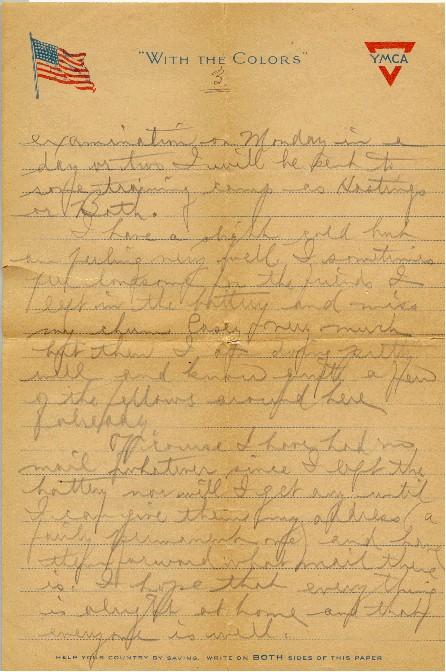 "WITH THE COLORS"
YMCA
3
examination on Monday in a
day or two I will be sent to
some training camp as Hastings
or Both.
I have a slight cold but
am feeling very well I sometimes
feel lonesome for the friends I
left in the battery and miss
my chum Casey very much
but then I am doing pretty
well and know quite a few
of the fellows around here
already.
Of course I have had no
mail whatever since I left the
battery nor will I get any until
I can give them my address (a
fairly permanent one) and have
them forward what mail there
is. I hope that everything
is alright at home and that
everyone is well.
HELP YOUR COUNTRY BY SAVING. WRITE ON BOTH SIDES OF THIS PAPER